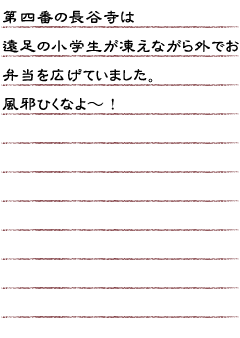 第四番の長谷寺は
遠足の小学生が凍えながら外でお
弁当を広げていました。
風邪ひくなよ～！